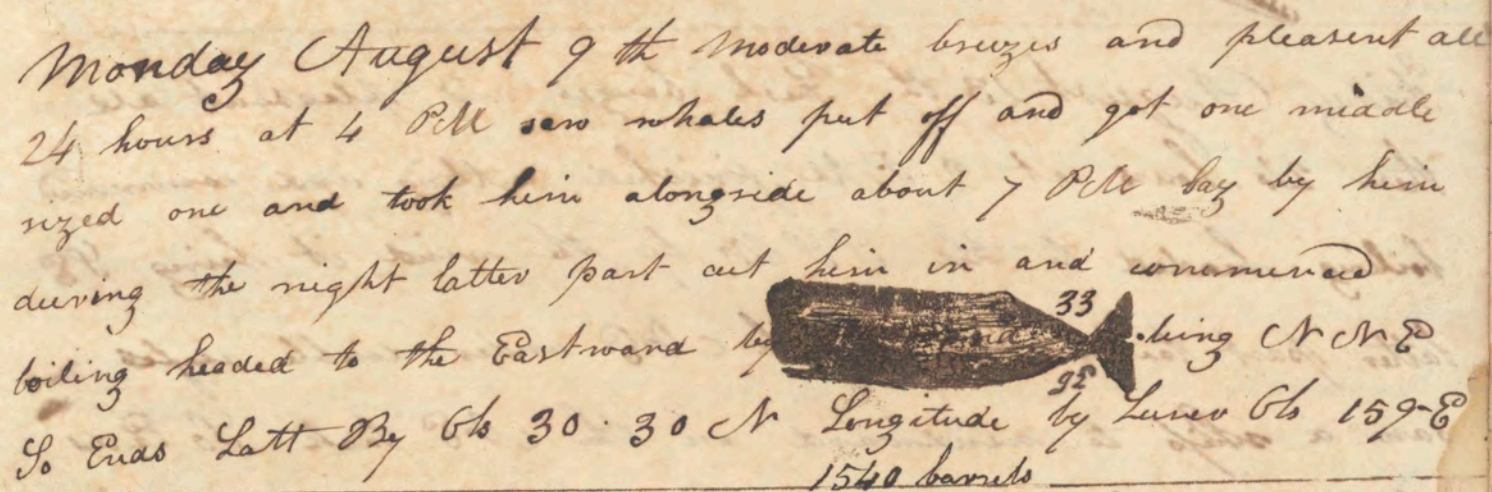 Monday August 9th Moderate breezes and pleasent all
24 hours at 4 PM saw whales put off and got one middle
sized one and took him alongside about 7 PM lay by him
during the night latter part cut him in and commenced
boiling headed to the Eastward by the wind being NNE
33
95
So Ends Latt By Obs 30.30 N Longitude by Luner Obs 159-E
1540 barrels